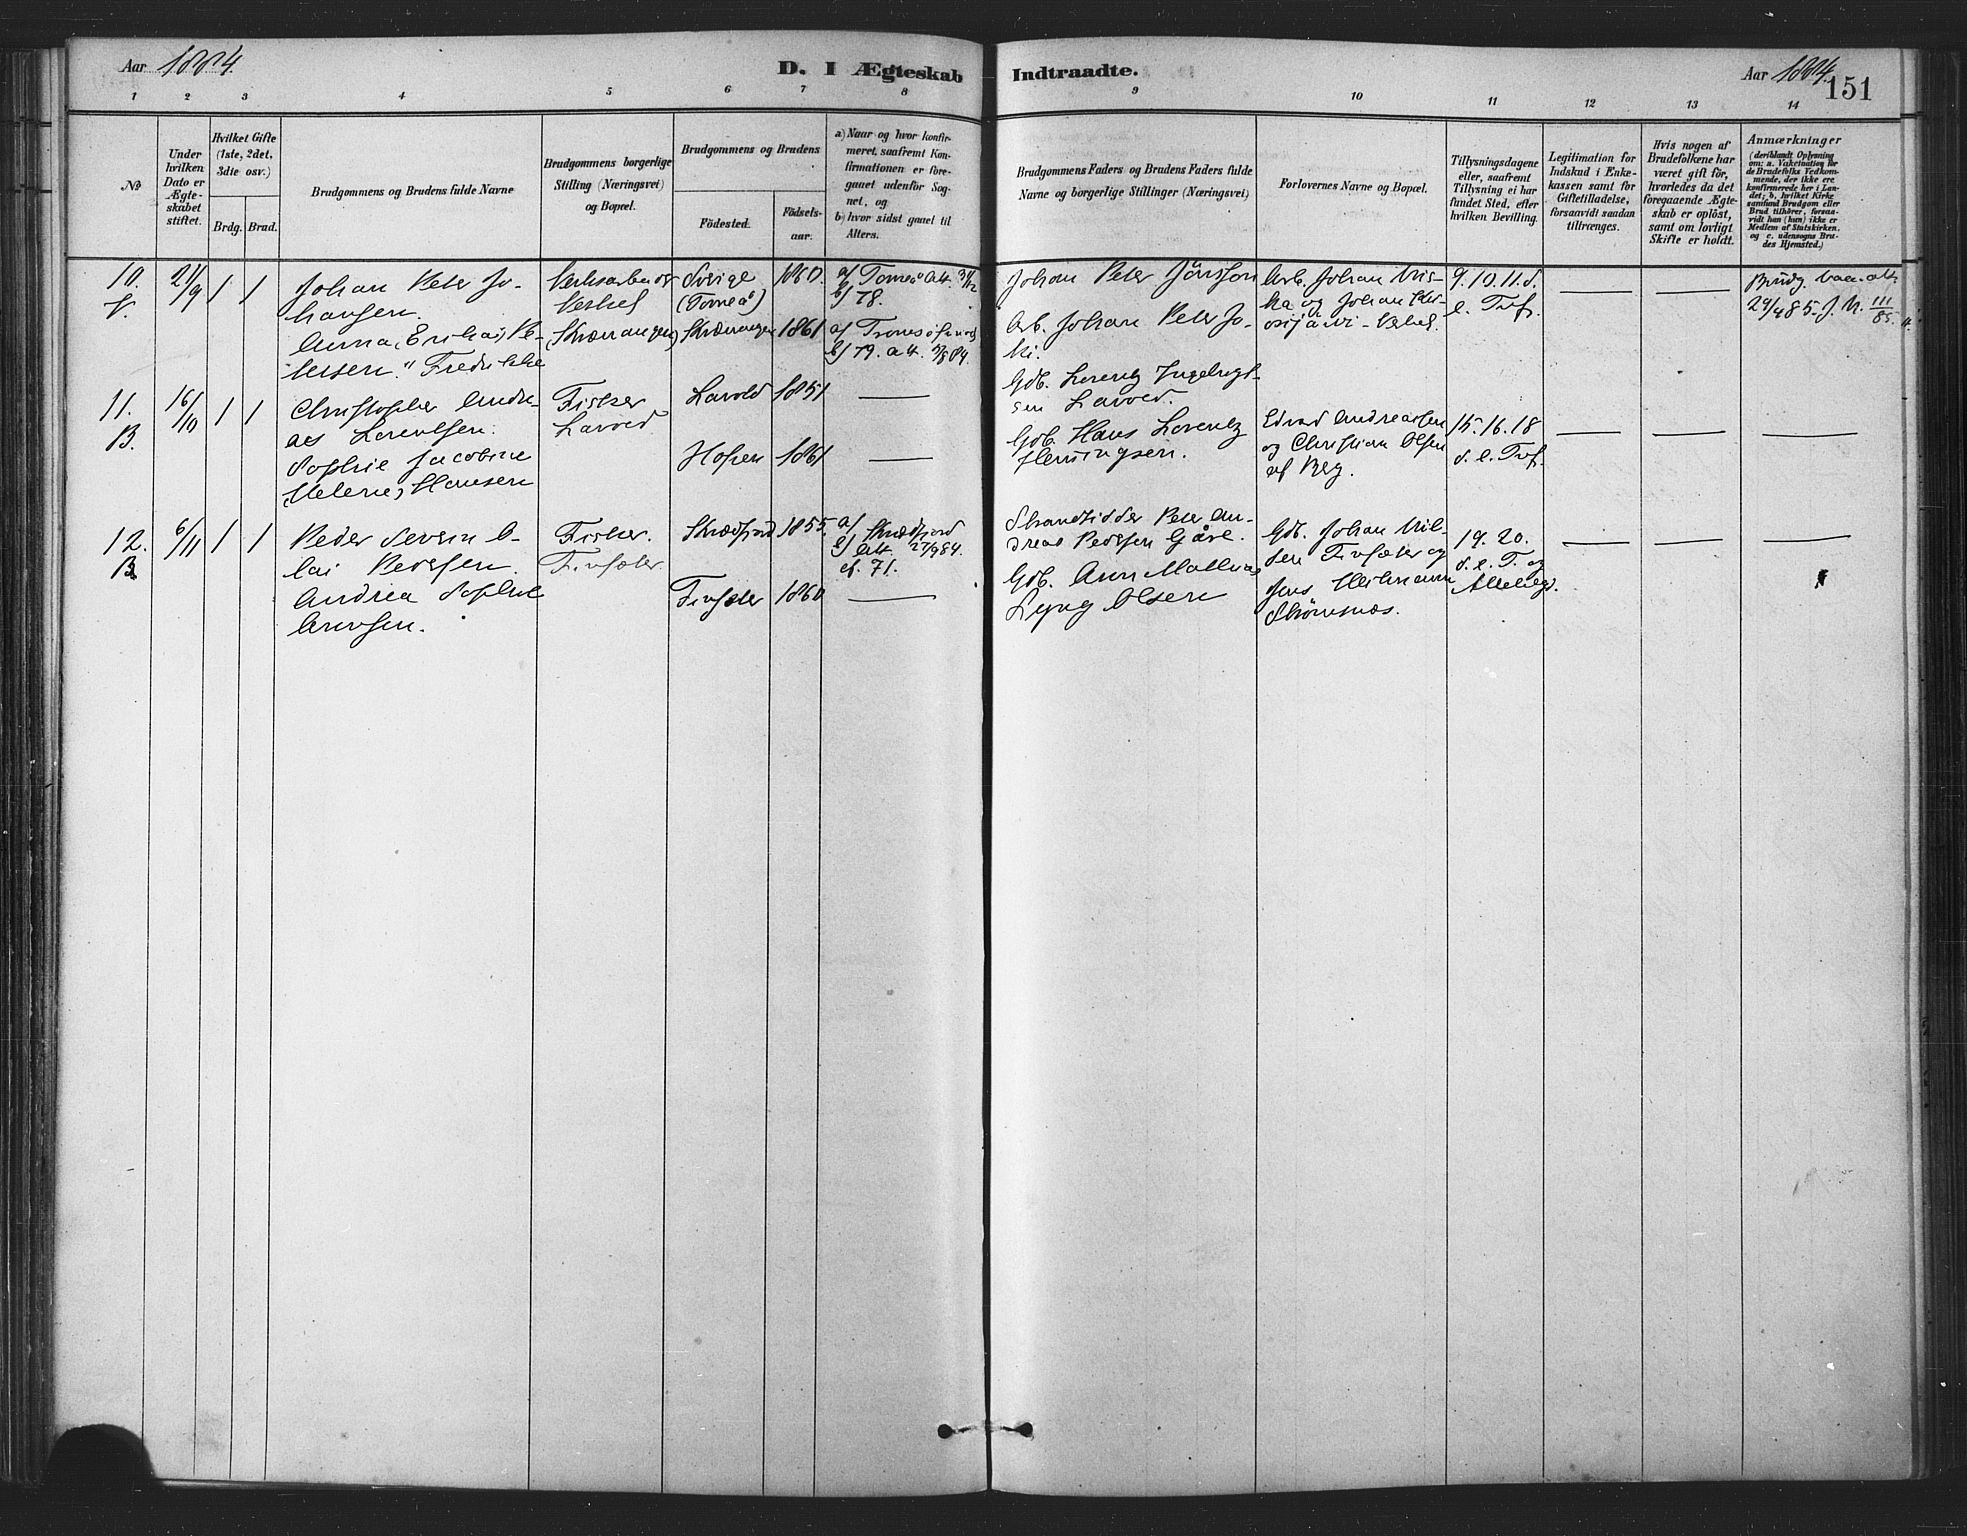 Aar 1884.
D. I Ægteskab Indtraadte.
Aar 1884.
151
1 2 3 4 5 6 7 8 9 10 11 12 13 14
No
Under hvilken Dato er Ægteskabet stiftet.
Hvilket Gifte (1ste, 2det, 3die osv.)
Brdg. Brud.
Brudgommens og Brudens fulde Navne
Brudgommens borgerlige Stilling (Næringsvei) og Bopæl.
Brudgommens og Brudens
Födested. Födsels-aar.
a) Naar og hvor konfirmeret, saafremt Konfirmationen er foregaaet udenför Sognet, og
b) hvor sidst gaaet til Alters.
Brudgommens Faders og Brudens Faders fulde Navne og borgerlige Stillinger (Næringsvei)
Forlovernes Navne og Bopæl.
Tillysningsdagene eller, saafremt Tillysning ei har fundet Sted, efter hvilken Bevilling.
Legitimation for Indskud i Enkekassen samt for Giftetilladelse, forsaavidt saadan tiltrænges.
Hvis nogen af Brudefolkene har været gift för, hvorledes da det foregaaende Ægteskab er oplöst, samt om lovligt Skifte er holdt.
Anmærkninger
(deriblandt Oplysning om: a. Vakcination for de Brudefolks Vedkommende, der ikke ere konfirmerede her i Landet; b. hvilket Kirkesamfund Brudgom eller Brud tilhörer, forsaavidt han (hun) ikke er Medlem af Statskirken. og c. udensogns Brudes Hjemsted.)
10. 21/9 1 1
Johan Peter Johansen.
Anna (Erika) Petersen. "Fredrikke
Verksarbeider
(Skværvangen)
Sverige (Torneå) 1860.
Skværvangen 1861
a/ Torneå Alt. 3/12
b/ 78.
a/ Tromsø
b/ 79. Alt. 84.
Johan Peter Jönsson
Arb. Johan Peter Jo-
ki.
Arb. Johan
ka og Johan
9. 10. 11. S.
e. Tref.
Brudg. vacc. att.
29/4 85. J. N. 111/85
11. B. 16/10 1 1
Christopher Andreas Lorentsen.
Sophie Jacobine (Helene) Hansen
Fisker
Lavold.
Lavold 1851
Hofsen 1861
Gdb. Lorentz Ingebrigt-
sen Lavold.
Gdb. Hans Lorentz
Henningsen.
Edvard Andreassen
og Christian Olsen
af Berg.
15. 16. 18
S. e. Tref.
12. B 6/11 1 1
Peder Severin O-
lai Pedersen.
Andrea Sophie
Arnesen.
Fisker.
Finsæter.
Skrædfjord 1855.
Finsæter 1860
a/ Skrædfjord
b/ Alt. 27/9 84.
cf. 71.
Strandsidder Peter An-
dreas Pedersen Gåre.
Gdb. Arn Mathias
Lyng Olsen
Gdb. Johan Nil-
sen Finsæter og
Jens Heitmann
Strömsnæs.
19. 20.
S. e. T. og
Allehelg.